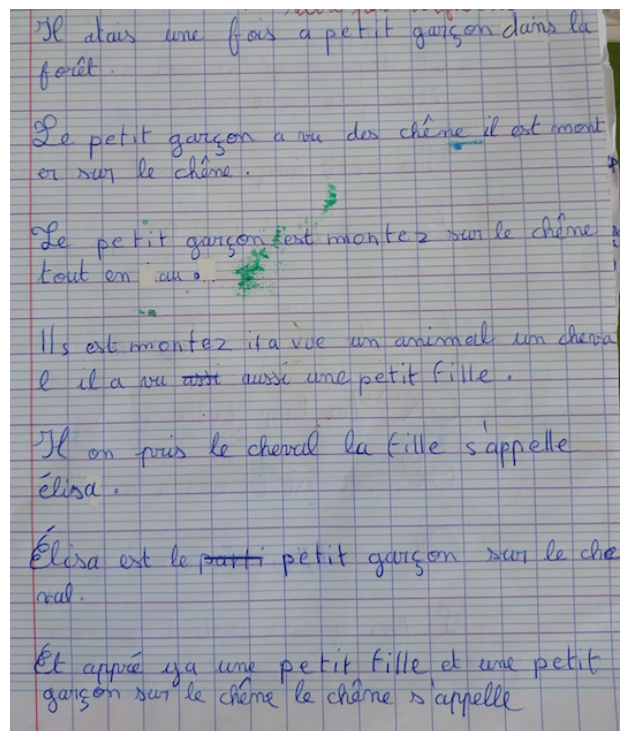 Il atais une fois a petit garçon dains la
forêt.
Le petit garçon a vu des chêne il est mont
er sur le chêne.
Le petit garçon est montez sur le chêne
tout en au.
Ils est montez il a vue un animal un cheva
l il a vu aussi une petit fille.
Il on pris le cheval la fille s'appelle
élisa.
Élisa est le petit garçon sur le che
val.
Et appré ya une petit fille et une petit
garçon sur le chêne le chêne s'appelle